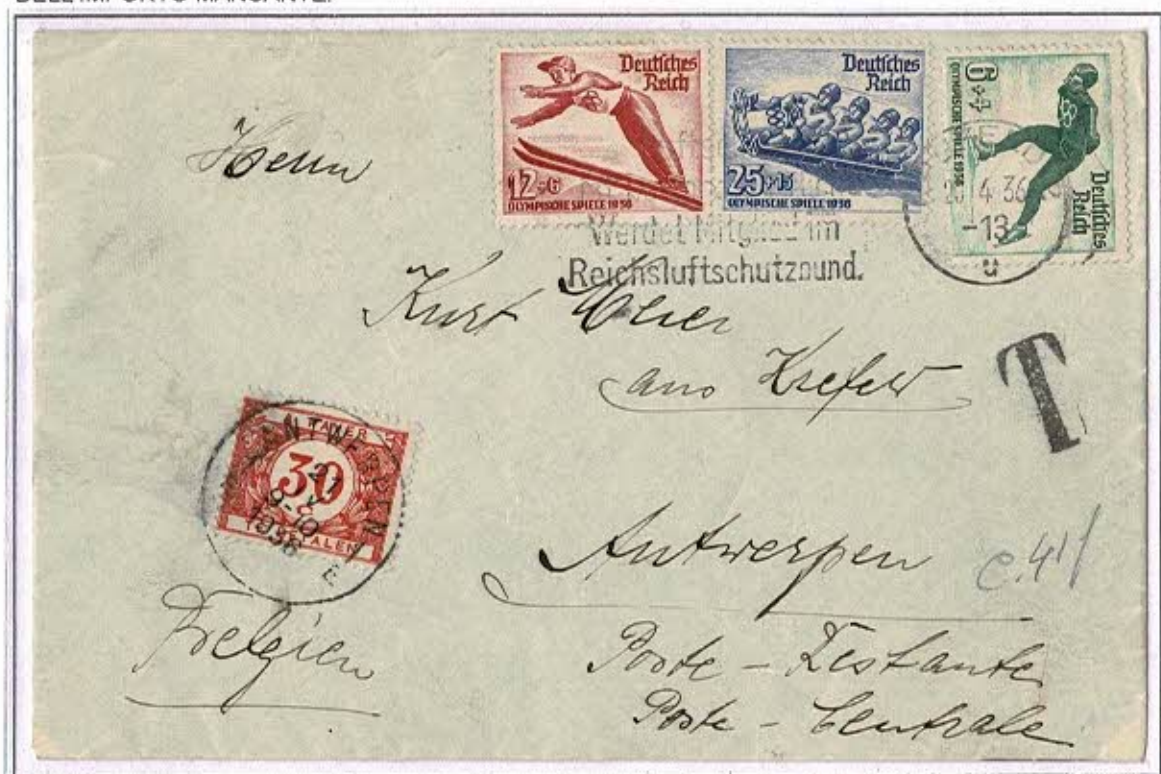 DELL'IMPORTO MANCANTE.
Deutsches
Reich
12+6
OLYMPISCHE SPIELE 1936
Deutsches
Reich
25+15
OLYMPISCHE SPIELE 1936
6+4
OLYMPISCHE SPIELE 1936
Deutsches
Reich
4.36
-13
u
Werdet Mitglied im
Reichsluftschutzbund.
Herrn
Kurt
aus Krefeld
T
ANTWERPEN
27
9-10
1936
E
30
TE BETALEN
Antwerpen
Belgien
Poste - Restante
Poste - Centrale